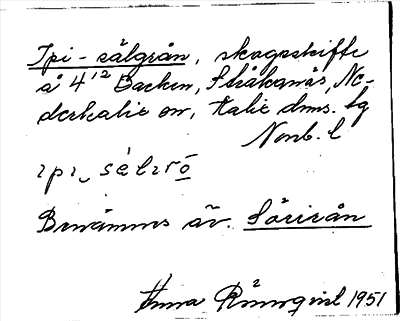 Ipi-sälgrån, skogsskifte
å 4¹² Backen, Stråkanäs, Ne-
derkalix sn, Kalix dms. tg
Nonb. l
ipi‿ sèlrō
Benämnes äv. Sörirån
Anna Rönnqvist 1951